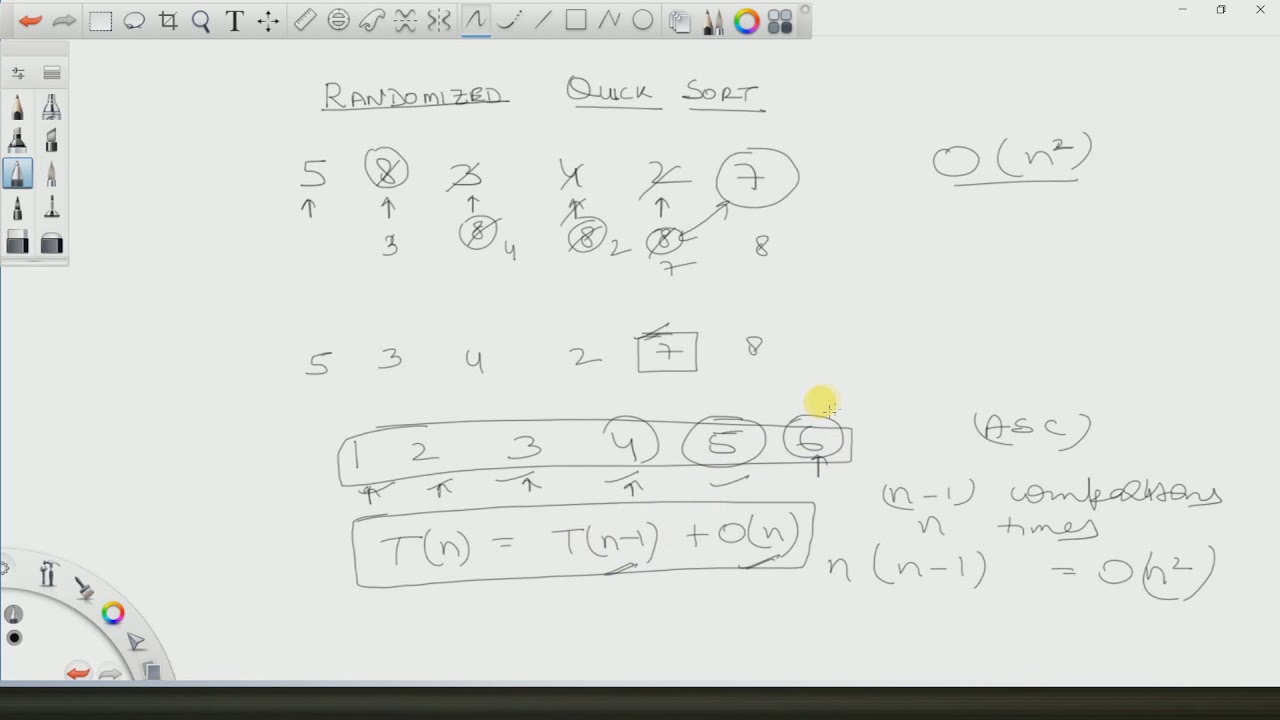 RANDOMIZED QUICK SORT
5 8 3 4 2 7
O(n²)
3 8 4 8 2 8 8
7
5 3 4 2 7 8
1 2 3 4 5 6
(ASC)
(n-1) comparisons
n times
T(n) = T(n-1) + O(n)
n(n-1) = O(n²)